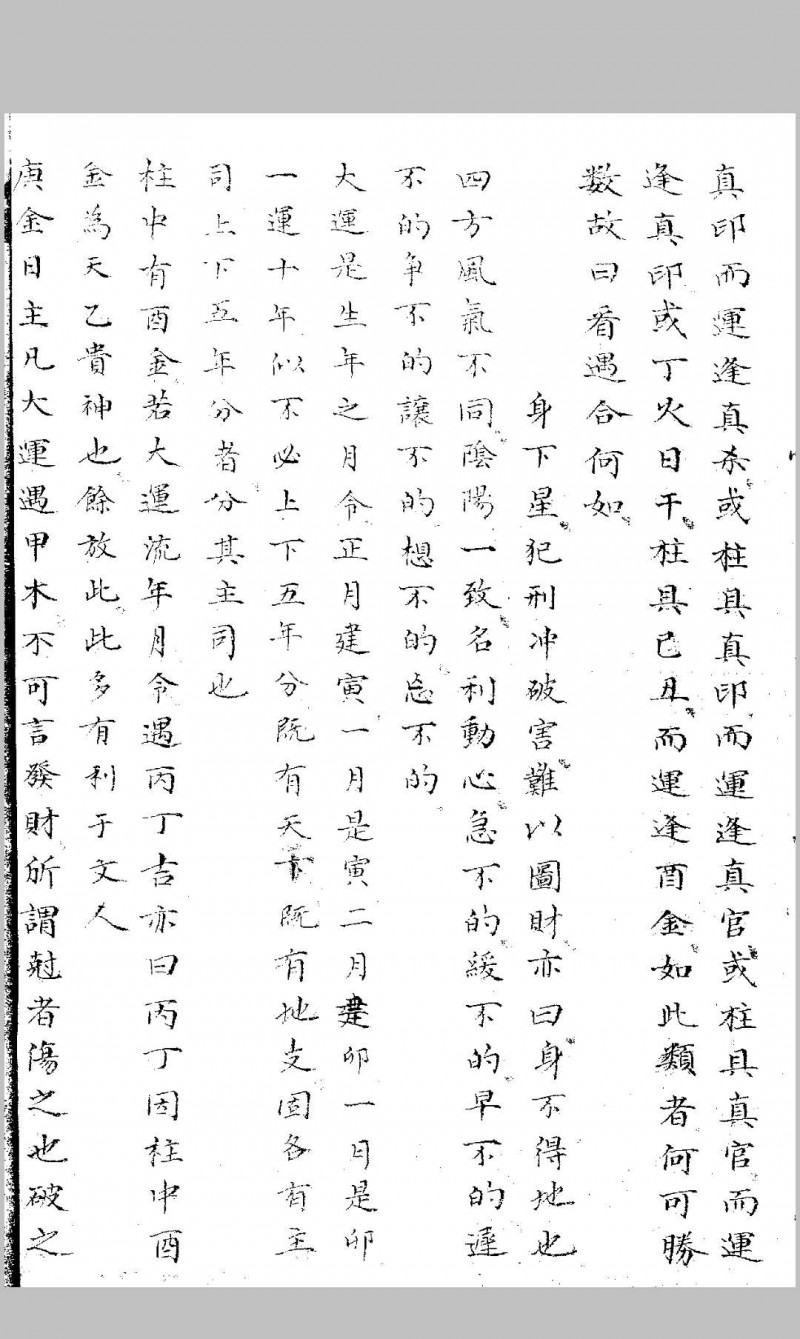 真印而運逢真杀或柱具真印而運逢真官或柱具真官而運
逢真印或丁火日干柱具已丑而運逢酉金如此類者何可勝
数故曰看遇合何如
身下星犯刑冲破害難以圖財亦曰身不得地也
四方風氣不同陰陽一致名利動心急不的緩不的早不的遲
不的争不的讓不的想不的忘不的
大運是生年之月令正月建寅一月是寅二月建卯一日是卯
一運十年似不必上下五年分既有天干既有地支固各有主
司上下五年分者分其主司也
柱中有酉金若大運流年月令遇丙丁吉亦曰丙丁因柱中酉
金為天乙貴神也餘放此此多有利于文人
庚金日主凡大運遇甲木不可言發財所謂尅者傷之也破之